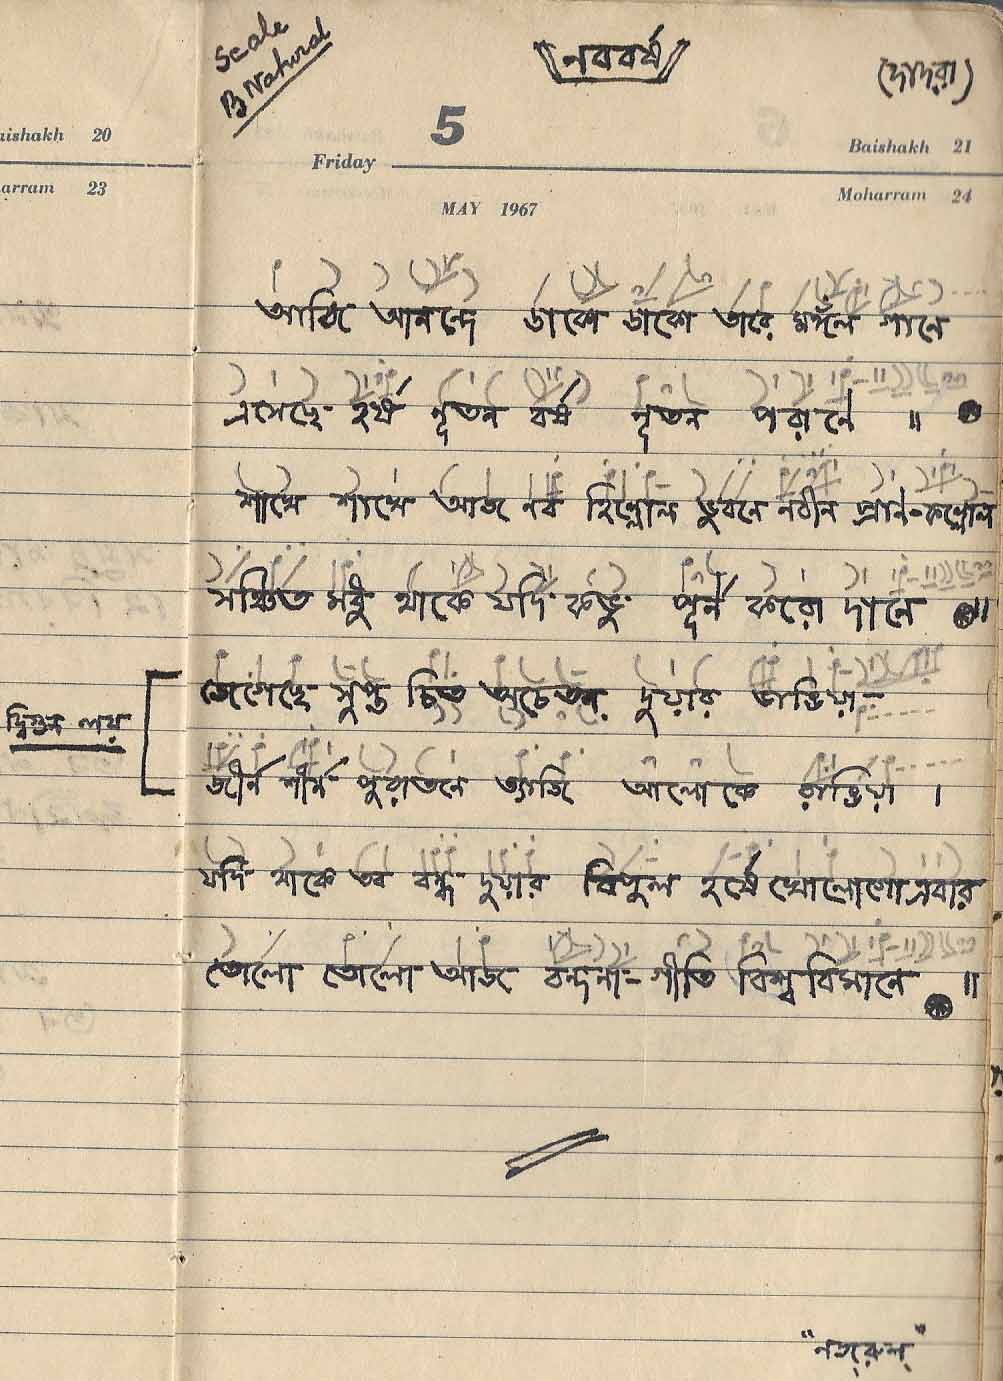 Scale
B Natural
নববর্ষ
(দাদরা)
aishakh 20
5
Friday
Baishakh 21
arram 23
MAY 1967
Moharram 24
আজি আনন্দে ডাকো ডাকো তারে মঙ্গল গানে
এসেছে হর্ষ নূতন বর্ষ নূতন পরানে ॥
শাখে শাখে আজ নব হিল্লোল ভুবনে নবীন প্রান-কল্লোল
সঞ্চিত মধু থাকে যদি কভু পূর্ন করো দানে ॥
জেগেছে সুপ্ত চিত অচেতন দুয়ার ভাঙিয়া
দ্বিগুন লয়
জীর্ন শীর্ন পুরাতনে ত্যজি আলোকে রাঙিয়া ।
যদি থাকে তব বন্ধ দুয়ার বিপুল হর্ষে খোলোগো এবার
তোলো তোলো আজ বন্দনা-গীতি বিশ্ব বিমানে ॥
"নজ্‌রুল্"